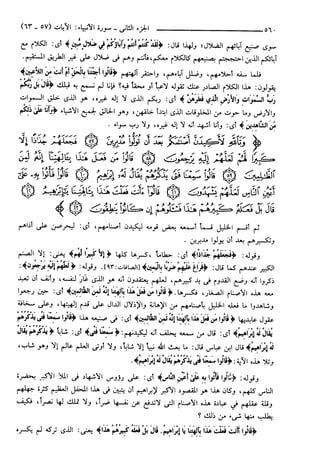 ٥٦٠ الجزء الثاني - سورة الأنبياء: الآيات (٥٧ - ٦٣)
سوى صنيع آبائهم الضلال؛ ولهذا قال: ﴿لَقَدْ كُنتُمْ أَنتُمْ وَآبَاؤُكُمْ فِي ضَلَالٍ مُبِينٍ﴾ أي: الكلام مع
آبائكم الذين احتججتم بصنيعهم كالكلام معكم، فأنتم وهم في ضلال على غير الطريق المستقيم.
فلما سفه أحلامهم، وضلل آباءهم، واحتقر آلهتهم ﴿قَالُوا أَجِئْتَنَا بِالْحَقِّ أَمْ أَنتَ مِنَ اللَّاعِبِينَ﴾
يقولون: هذا الكلام الصادر عنك تقوله لاعباً أو محقاً فيه؟ فإنا لم نسمع به قبلك ﴿قَالَ بَل رَّبُّكُمْ
رَبُّ السَّمَاوَاتِ وَالْأَرْضِ الَّذِي فَطَرَهُنَّ﴾ أي: ربكم الذي لا إله غيره، هو الذي خلق السموات
والأرض وما حوت من المخلوقات الذي ابتدأ خلقهن، وهو الخالق لجميع الأشياء ﴿وَأَنَا عَلَى ذَلِكُم
مِّنَ الشَّاهِدِينَ﴾ أي: وأنا أشهد أنه لا إله غيره، ولا رب سواه.
وَتَاللَّهِ لَأَكِيدَنَّ أَصْنَامَكُم بَعْدَ أَن تُوَلُّوا مُدْبِرِينَ فَجَعَلَهُمْ جُذَاذًا إِلَّا
كَبِيرًا لَّهُمْ لَعَلَّهُمْ إِلَيْهِ يَرْجِعُونَ قَالُوا مَن فَعَلَ هَذَا بِآلِهَتِنَا إِنَّهُ لَمِنَ
الظَّالِمِينَ قَالُوا سَمِعْنَا فَتًى يَذْكُرُهُمْ يُقَالُ لَهُ إِبْرَاهِيمُ قَالُوا فَأْتُوا بِهِ عَلَى
أَعْيُنِ النَّاسِ لَعَلَّهُمْ يَشْهَدُونَ قَالُوا أَأَنتَ فَعَلْتَ هَذَا بِآلِهَتِنَا يَا إِبْرَاهِيمُ
قَالَ بَلْ فَعَلَهُ كَبِيرُهُمْ هَذَا فَاسْأَلُوهُمْ إِن كَانُوا يَنطِقُونَ
ثم أقسم الخليل قسماً أسمعه بعض قومه ليكيدن أصنامهم، أي: ليحرصن على أذاهم
وتكسيرهم بعد أن يولوا مدبرين.
وقوله: ﴿فَجَعَلَهُمْ جُذَاذًا﴾ أي: حطاماً، كسرها كلها ﴿إِلَّا كَبِيرًا لَّهُمْ﴾ يعني: إلا الصنم
الكبير عندهم كما قال: ﴿فَرَاغَ عَلَيْهِمْ ضَرْبًا بِالْيَمِينِ﴾ [الصافات: ٩٣]. وقوله: ﴿لَعَلَّهُمْ إِلَيْهِ يَرْجِعُونَ﴾:
ذكروا أنه وضع القدوم في يد كبيرهم، لعلهم يعتقدون أنه هو الذي غار لنفسه، وأنف أن تعبد
معه هذه الأصنام الصغار، فكسرها. ﴿قَالُوا مَن فَعَلَ هَذَا بِآلِهَتِنَا إِنَّهُ لَمِنَ الظَّالِمِينَ﴾ أي: حين رجعوا
وشاهدوا ما فعله الخليل بأصنامهم من الإهانة والإذلال الدال على عدم إلهيتها، وعلى سخافة
عقول عابديها ﴿قَالُوا مَن فَعَلَ هَذَا بِآلِهَتِنَا إِنَّهُ لَمِنَ الظَّالِمِينَ﴾ أي: في صنيعه هذا ﴿قَالُوا سَمِعْنَا فَتًى يَذْكُرُهُمْ
يُقَالُ لَهُ إِبْرَاهِيمُ﴾ أي: قال من سمعه يحلف أنه ليكيدنهم: ﴿سَمِعْنَا فَتًى﴾ أي: شاباً ﴿يَذْكُرُهُمْ يُقَالُ
لَهُ إِبْرَاهِيمُ﴾ قال ابن عباس قال: ما بعث الله نبياً إلا شاباً، ولا أوتي العلم عالم إلا وهو شاب،
وتلا هذه الآية: ﴿قَالُوا سَمِعْنَا فَتًى يَذْكُرُهُمْ يُقَالُ لَهُ إِبْرَاهِيمُ﴾.
وقوله: ﴿قَالُوا فَأْتُوا بِهِ عَلَى أَعْيُنِ النَّاسِ﴾ أي: على رؤوس الأشهاد في الملأ الأكبر بحضرة
الناس كلهم، وكان هذا هو المقصود الأكبر لإبراهيم أن يتبين في هذا المحفل العظيم كثرة جهلهم
وقلة عقلهم في عبادة هذه الأصنام التي لا تدفع عن نفسها ضراً، ولا تملك لها نصراً، فكيف
يطلب منها شيء من ذلك ؟
﴿قَالُوا أَأَنتَ فَعَلْتَ هَذَا بِآلِهَتِنَا يَا إِبْرَاهِيمُ. قَالَ بَلْ فَعَلَهُ كَبِيرُهُمْ هَذَا﴾ يعني: الذي تركه لم يكسره